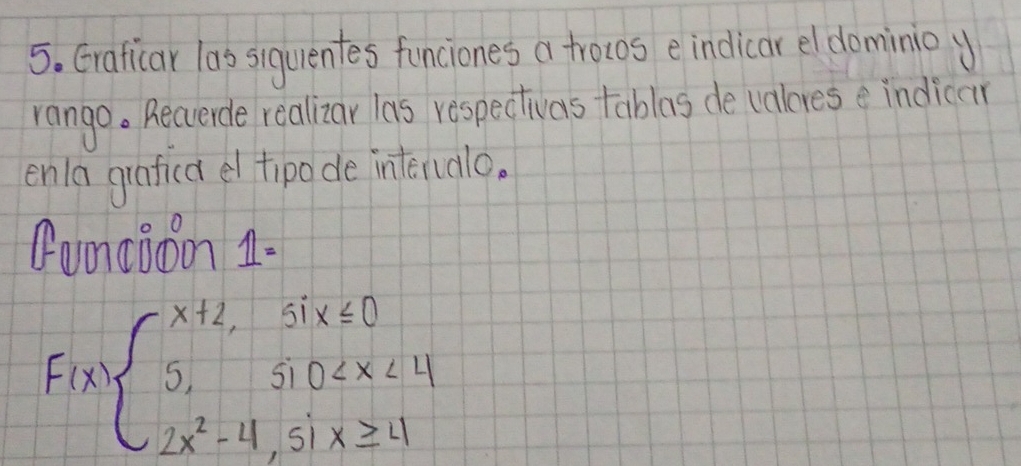 5. Graficar las siguientes funciones a trozos e indicar el dominio y
rango. Recuerde realizar las respectivas tablas de valores e indicar
en la grafica el tipo de intervalo.
Función 1=
x+2, si x ≤ 0
F(x){ 5, si 0 < x < 4
2x² - 4, si x ≥ 4